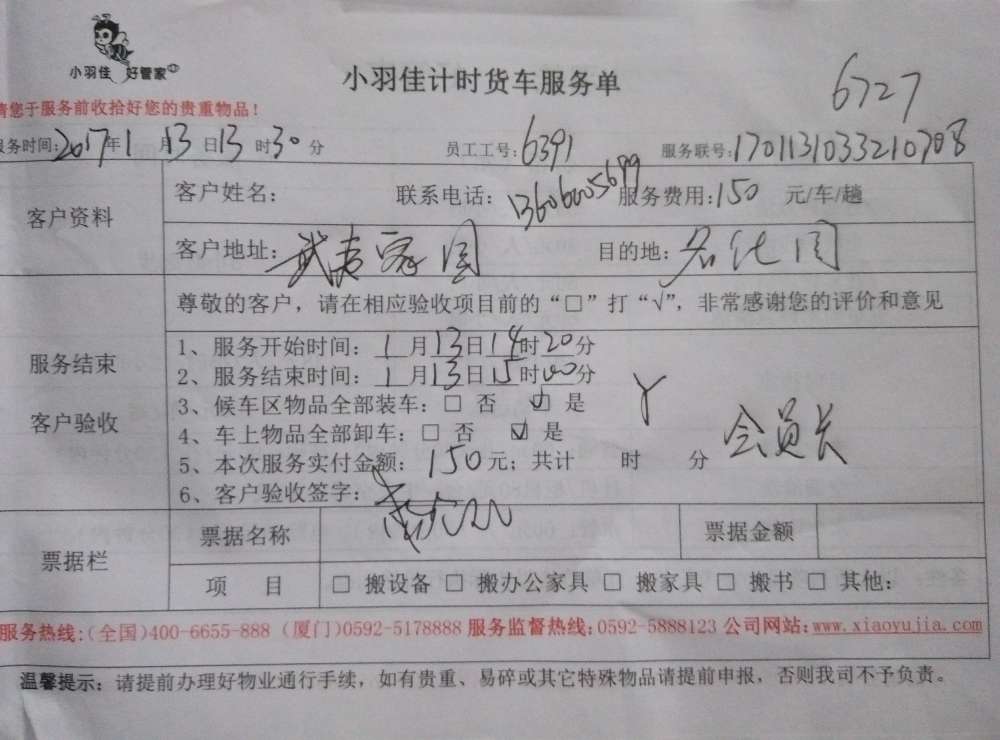 小羽佳 好管家
小羽佳计时货车服务单
6727
请您于服务前收拾好您的贵重物品！
服务时间：2017年1月13日13时30分 员工工号：6391 服务联号：1701131033210708
客户资料
客户姓名： 联系电话：13606005699 服务费用：150 元/车/趟
客户地址： 目的地：
尊敬的客户，请在相应验收项目前的“□”打“√”，非常感谢您的评价和意见
服务结束
客户验收
1、服务开始时间：1月13日14时20分
2、服务结束时间：1月13日15时00分
3、候车区物品全部装车：□ 否 ☑ 是
4、车上物品全部卸车：□ 否 ☑ 是
5、本次服务实付金额：150元；共计 时 分
会员卡
6、客户验收签字：
票据栏
票据名称 票据金额
项 目 □ 搬设备 □ 搬办公家具 □ 搬家具 □ 搬书 □ 其他：
服务热线：(全国)400-6655-888 (厦门)0592-5178888 服务监督热线：0592-5888123 公司网站：www.xiaoyujia.com
温馨提示：请提前办理好物业通行手续，如有贵重、易碎或其它特殊物品请提前申报，否则我司不予负责。